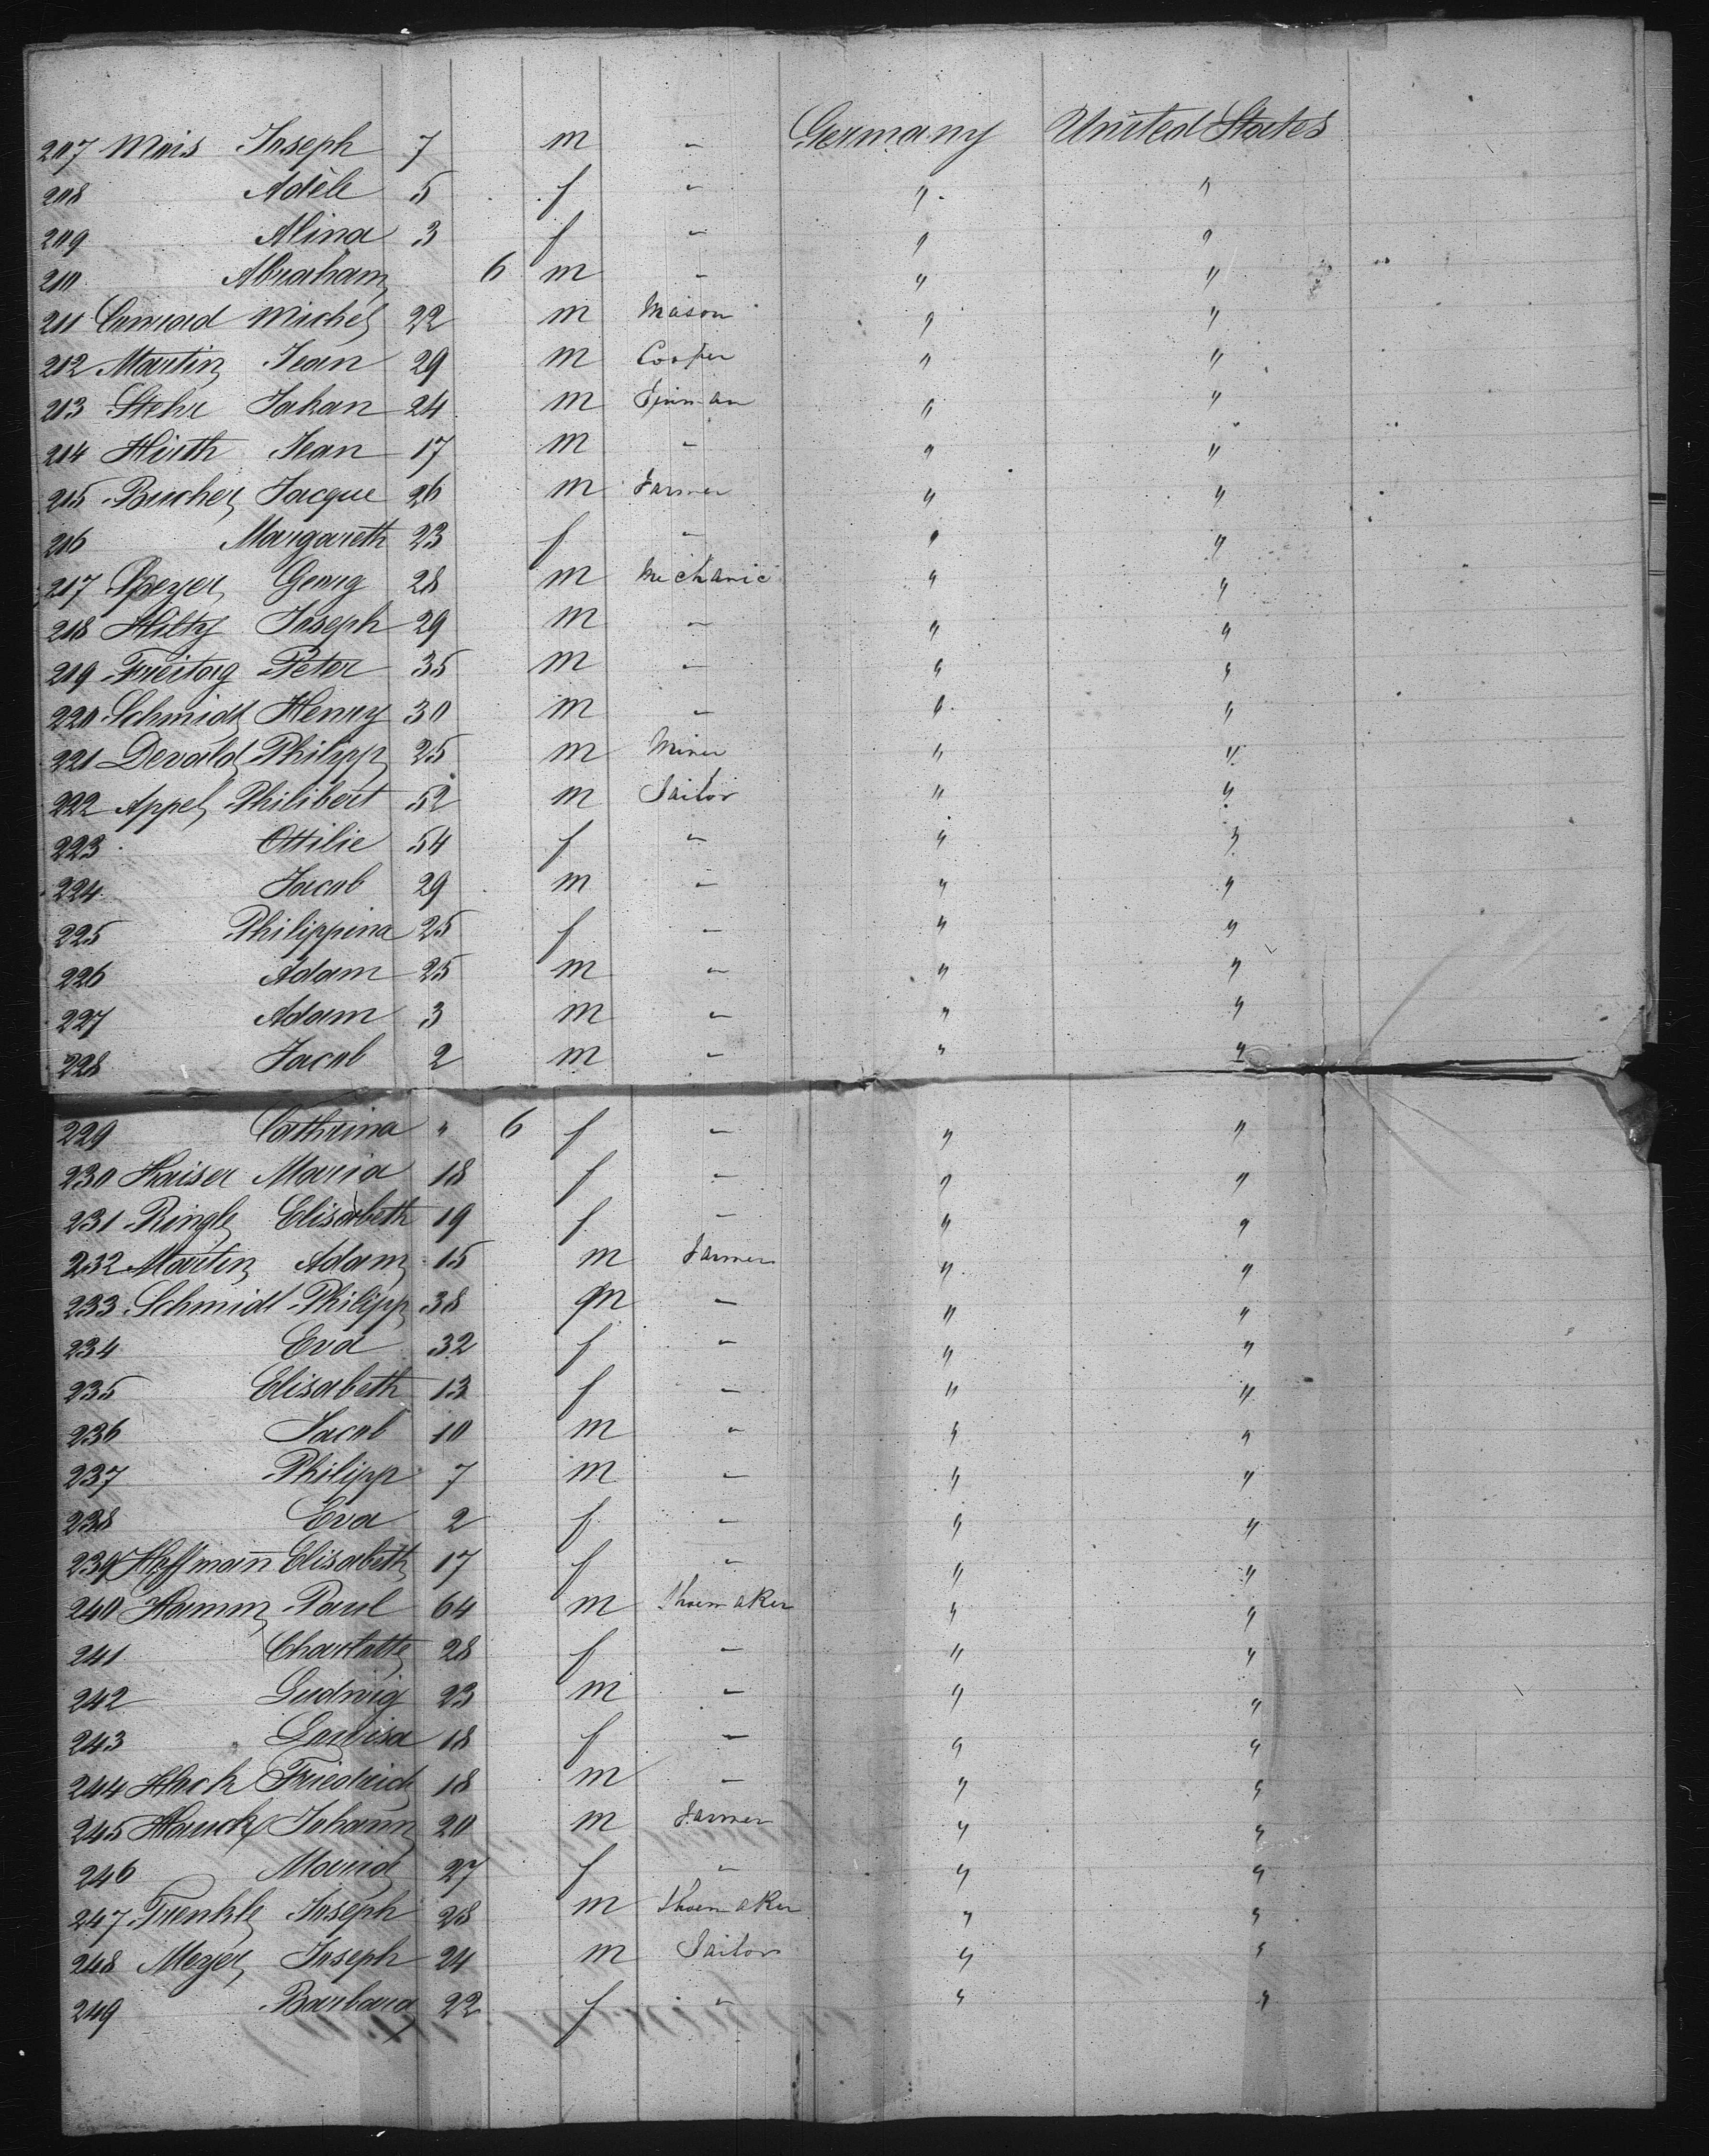 207 Mois Joseph 7 m " Germany United States
208 Adèle 5 f " " "
209 Alina 3 f " " "
210 Abraham 6 m " " "
211 Conrad Michel 22 m Mason " "
212 Martin Jean 29 m Cooper " "
213 Stehr Johan 24 m Tinman " "
214 Hirth Jean 17 m " " "
215 Bucher Jacque 26 m Farmer " "
216 Margareth 23 f " " "
217 Speyer Georg 28 m Mechanic " "
218 Hilty Joseph 29 m " " "
219 Freitag Peter 35 m " " "
220 Schmidt Henry 30 m " " "
221 Devald Philipp 25 m Miner " "
222 Appel Philibert 52 m Tailor " "
223 Ottilie 54 f " " "
224 Jacob 29 m " " "
225 Philippina 25 f " " "
226 Adam 25 m " " "
227 Adam 3 m " " "
228 Jacob 2 m " " "
229 Cathrina " 6 f " " "
230 Kaiser Maria 18 f " " "
231 Ringle Elisabeth 19 f " " "
232 Martin Adam 15 m Farmer " "
233 Schmidt Philipp 38 m " " "
234 Eva 32 f " " "
235 Elisabeth 13 f " " "
236 Jacob 10 m " " "
237 Philipp 7 m " " "
238 Eva 2 f " " "
239 Hoffmann Elisabeth 17 f " " "
240 Hamm Paul 64 m Shoemaker " "
241 Charlotte 28 f " " "
242 Ludwig 23 m " " "
243 Louisa 18 f " " "
244 Hack Friedrich 18 m " " "
245 Hauck Johann 20 m Farmer " "
246 Maria 27 f " " "
247 Trenkle Joseph 28 m Shoemaker " "
248 Meyer Joseph 24 m Tailor " "
249 Barbara 22 f " " "